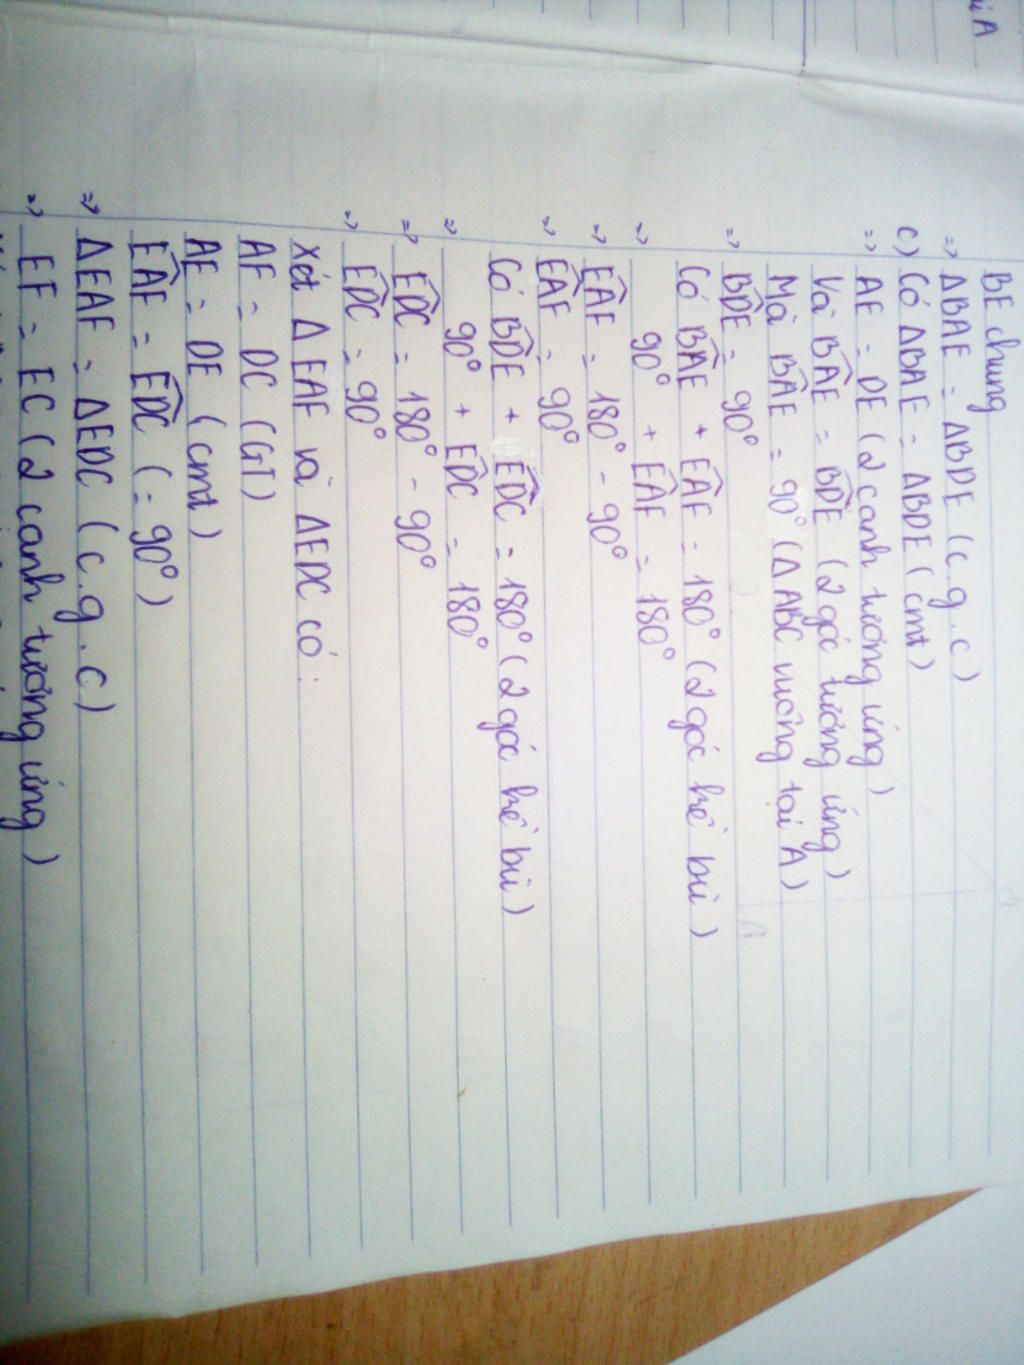 ại A
BE chung
=> ΔBAE = ΔBDE (c.g.c)
c) Có ΔBAE = ΔBDE (cmt)
=> AE = DE (2 cạnh tương ứng)
Và B̂AE = B̂DE (2 góc tương ứng)
Mà B̂AE = 90° (Δ ABC vuông tại A)
=> B̂DE = 90°
Có B̂AE + ÊAF = 180° (2 góc kề bù)
=> 90° + ÊAF = 180°
=> ÊAF = 180° - 90°
=> ÊAF = 90°
Có B̂DE + ÊDC = 180° (2 góc kề bù)
=> 90° + ÊDC = 180°
=> ÊDC = 180° - 90°
=> ÊDC = 90°
Xét Δ EAF và ΔEDC có:
AF = DC (GT)
AE = DE (cmt)
ÊAF = ÊDC (= 90°)
=> ΔEAF = ΔEDC (c.g.c)
=> EF = EC (2 cạnh tương ứng)